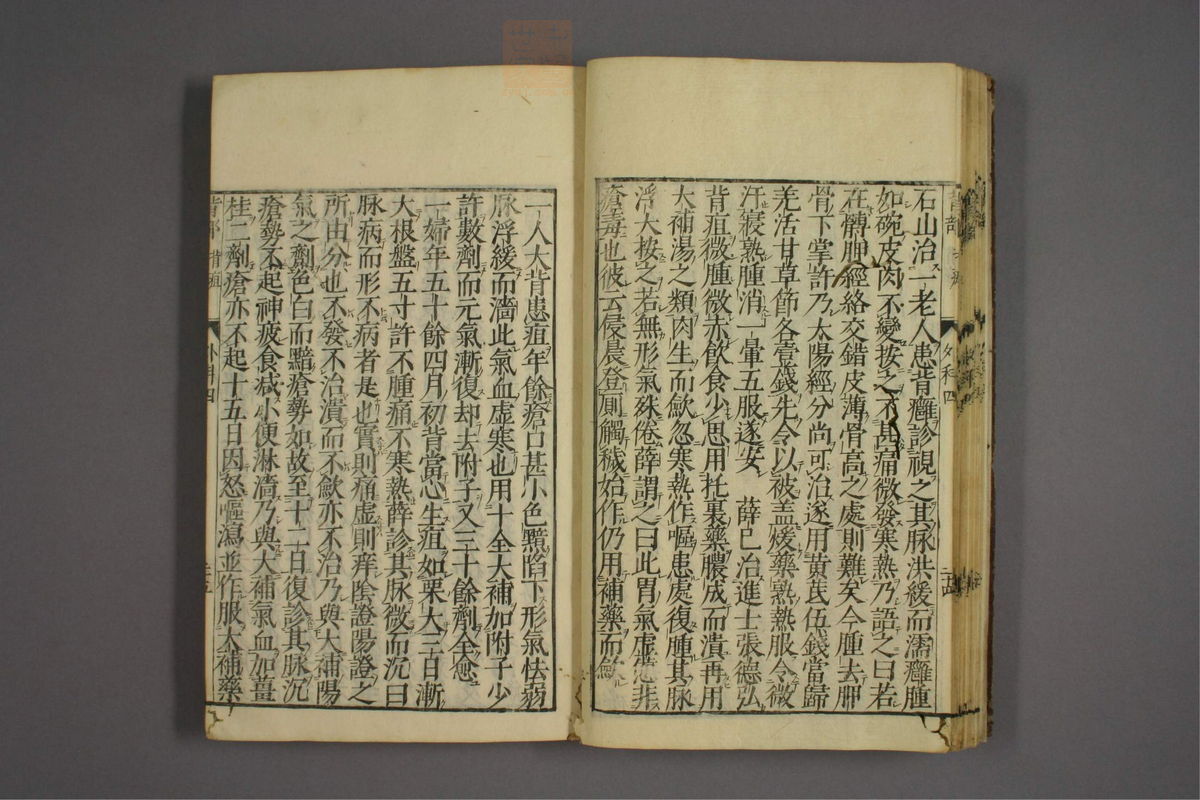 石山治一老人患背癰診視之其脉洪緩而濡癰腫
如碗皮肉不變按之不甚痛微發寒熱乃語之曰若
在髆胛經絡交錯皮薄骨高之處則難矣今腫去胛
骨下掌許乃太陽經分尚可治遂用黄芪伍錢當歸
羌活甘草節各壹錢先令以被盖煖藥熟熱服令微
汗寢熟腫消一暈五服遂安　薛已治進士張德弘
背疽微腫微赤飲食少思用托裏藥膿成而潰再用
大補湯之類肉生而斂忽寒熱作嘔患處復腫其脉
浮大按之若無形氣殊倦薛謂之曰此胃氣虛憊非
瘡毒也彼云侵晨登厠觸穢始作仍用補藥而斂
外科四
一人大背患疽年餘瘡口甚小色黯陷下形氣怯弱
脉浮緩而濇此氣血虛寒也用十全大補加附子少
許數劑而元氣漸復却去附子又三十餘劑全愈
一婦年五十餘四月初背當心生疽如粟大三日漸
大根盤五寸許不腫痛不寒熱薛診其脉微而沉曰
脉病而形不病者是也實則痛虛則痒陰證陽證之
所由分也不發不治潰而不斂亦不治乃與大補陽
氣之劑色白而黯瘡勢如故至十二日復診其脉沉
瘡勢不起神疲食減小便淋濇乃與大補氣血加薑
桂二劑瘡亦不起十五日因怒嘔瀉並作服大補藥
背部 背疽 外科四